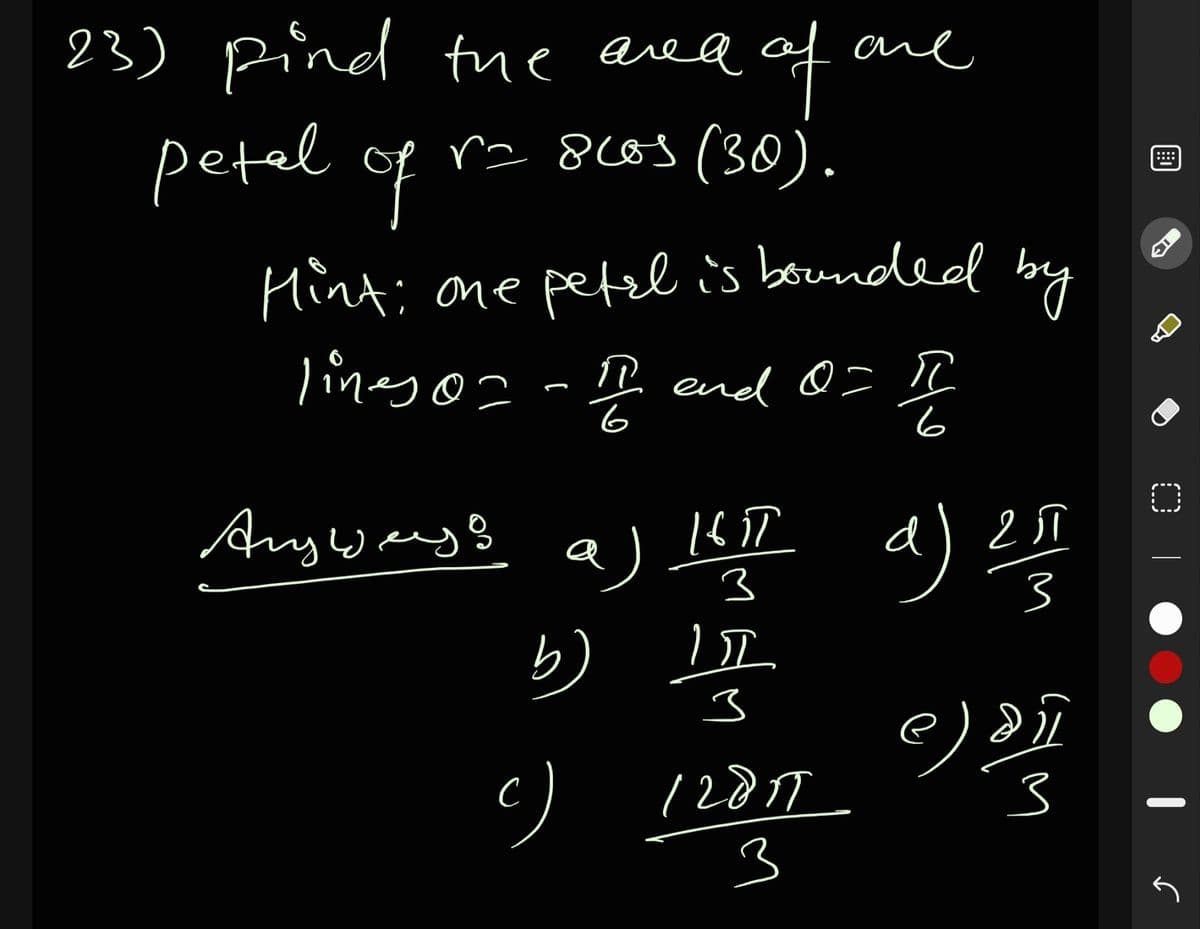 23) Find the area of one
petal of r = 8cos(3θ).
Hint: one petal is bounded by
lines θ = -π/6 and θ = π/6
Answers: a) 16π/3 d) 2π/3
b) 1π/3
e) 8π/3
c) 128π/3